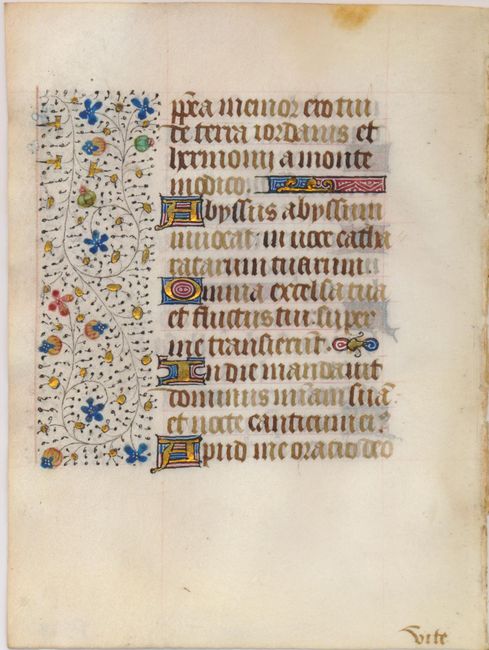 pp̄ea memor ero tui
de terra iordanis et
hermonij a monte
modico.
Abyssus abyssum
inuocat: in uoce catha
ractarum tuarum
Omnia excelsa tua
et fluctus tui: super
me transierūt.
In die mandauit
dominus m̄iam suā
et nocte canticum ei?
Apud me oracio deo
vite